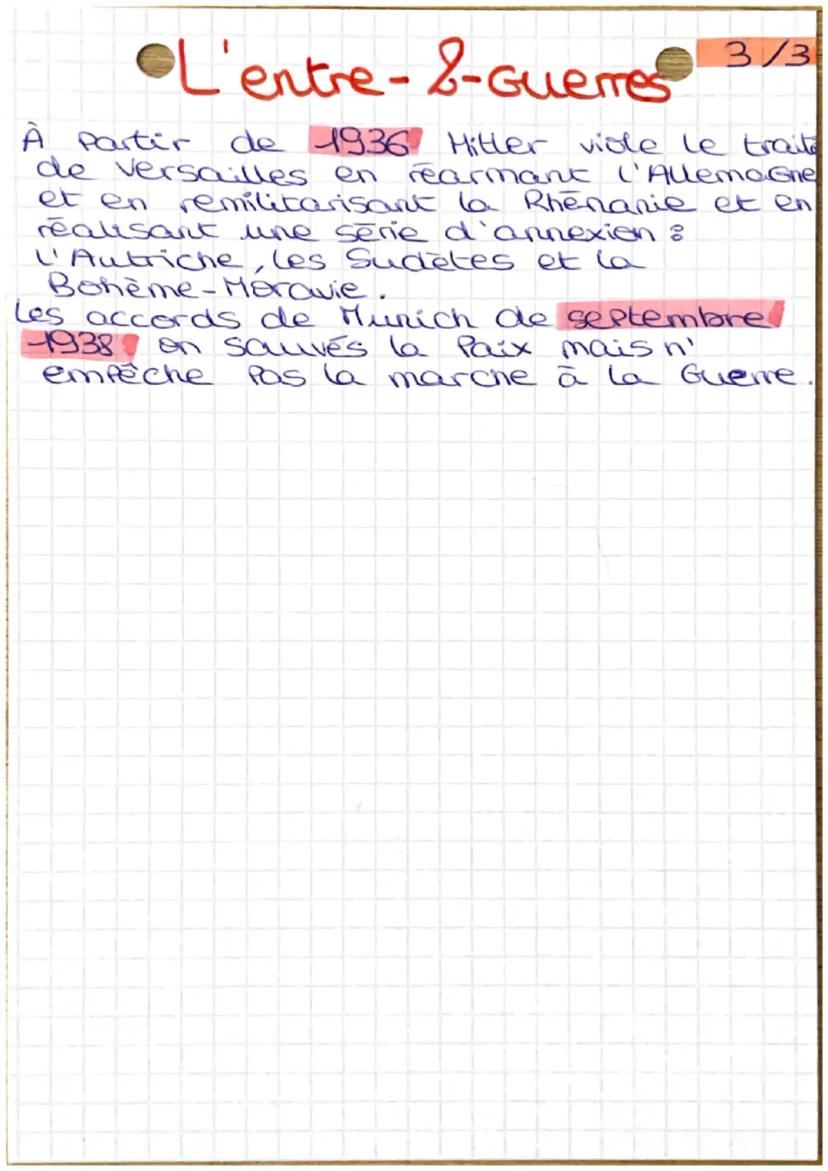 L'entre-2-Guerres
3/3
À partir de 1936 Hitler viole le traité
de Versailles en réarmant l'Allemagne
et en remilitarisant la Rhénanie et en
réalisant une série d'annexion :
L'Autriche, les Sudètes et la
Bohème-Moravie.
Les accords de Munich de septembre
1938 on sauvés la Paix mais n'
empêche pas la marche à la Guerre.